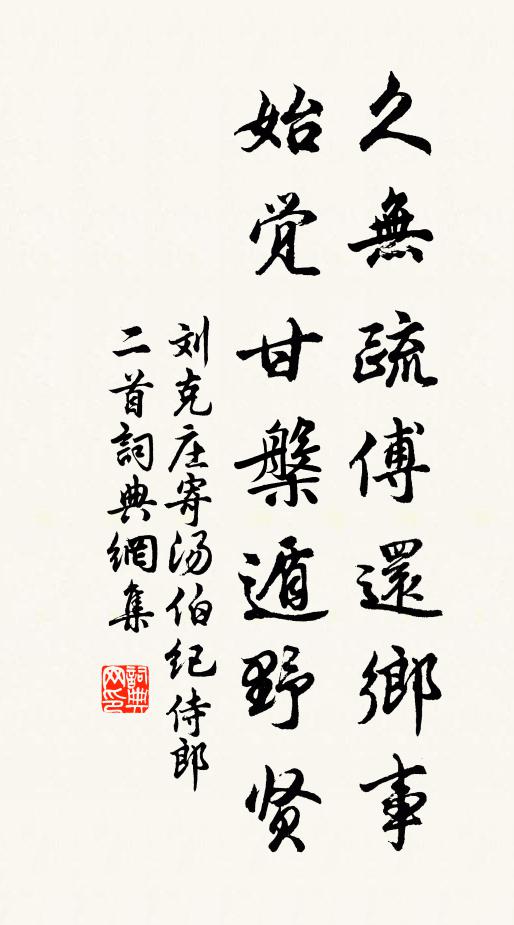 久無疏傅還鄉事
始觉甘槃遁野贤
刘克庄寄汤伯纪侍郎
二首詞典網集
詞典网印